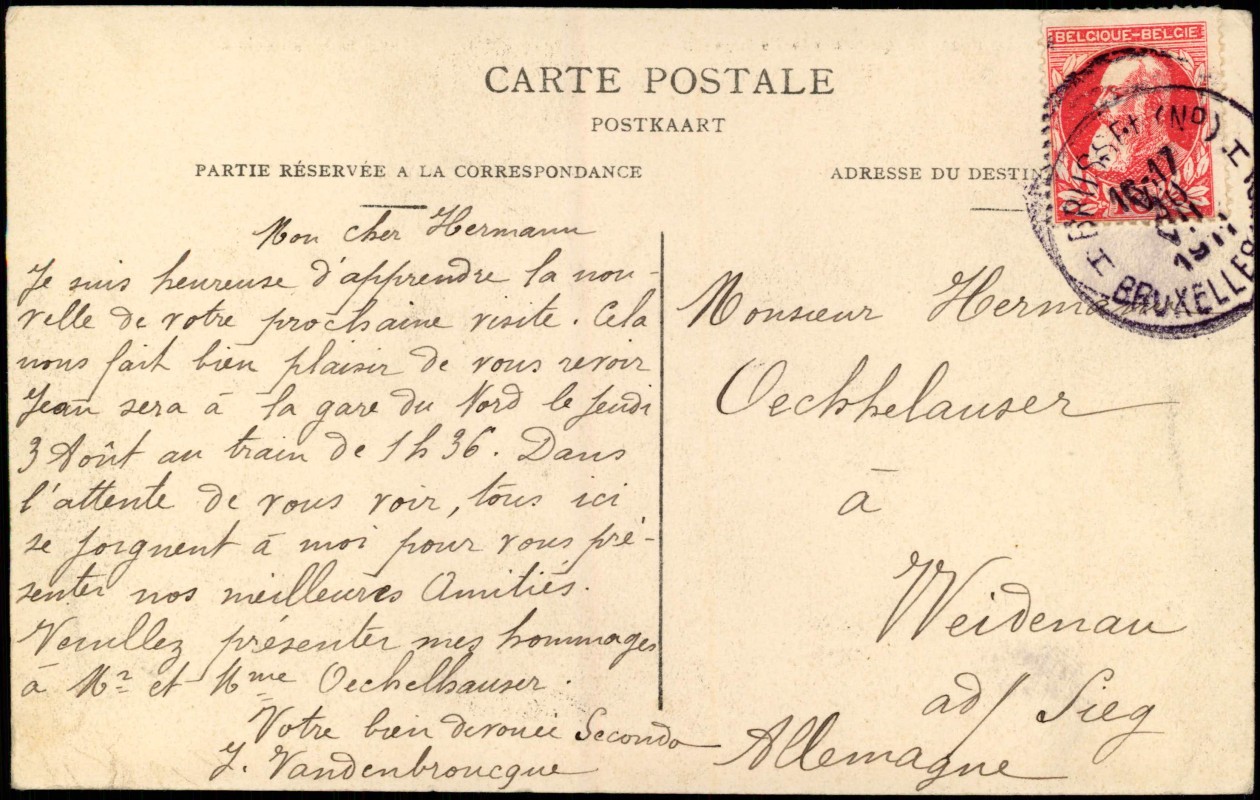 CARTE POSTALE
POSTKAART
PARTIE RÉSERVÉE A LA CORRESPONDANCE
Mon cher Hermann
Je suis heureuse d'apprendre la nou-
velle de votre prochaine visite. Cela
nous fait bien plaisir de vous revoir
Jean sera à la gare du Nord le Jeudi
3 Août au train de 1h36. Dans
l'attente de vous voir, tous ici
se joignent à moi pour vous pré-
senter nos meilleures Amitiés.
Veuillez présenter mes hommages
à Mr et Mme Oechelhauser.
Votre bien devouée Seconda
J. Vandenbroucque
ADRESSE DU DESTIN
BELGIQUE-BELGIE
BRUSSEL (ND)
16-17
1911
BRUXELLES
Monsieur Herma
Oechhelauser
à
Weidenau
ad/ Sieg
Allemagne